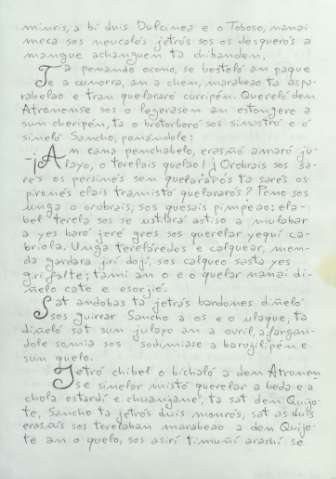 minris, a bi duis Dulcinea e o Toboso, nanai
meca sos neucalós jetrós sos os desqueros a
mangue achanguen ta chibanden.
Ta penando ocono, se bestelo an paque
e a cumorra, am a chen, marabeao ta aspa-
rabelao e tran quelararé curripén. Querelo den
Atronense sos o legerasem an estongere a
sun cheripen, ta o brotorboró sos sinastró e o
simeló Sancho, penándole:
Am cana penchabelo, erasñó amaró ju-
layo, o terelais quelao! ¡Orobrais sos sa-
rés os persimos sem quelarabós ta sarés os
pirenés elais tramistó quelararós? Peno sos
unga o orobrais, sos quesais pimpeao: ela-
bel terela sos se ustilara astiso a mulabar
a yes baró jere gres sos querelar yequi ca-
briola. Unga tereláredes e calquear, men-
da gardara jiri doji, sos calqueo sasta yes
gri falte; tami an o e o quelar nanai di-
ñelo cate e esorjié.
Sat andobas ta jetrós bardones diñeló
sos guirrar Sancho a os e o ulaque, ta
diñeló sat sun julayo am a ouril, a fargan-
dole somia sos sodimiase a barogilipen e
sun quelo.
Jetró chibel o bichaló a dem Atronen
se simelor mistó querelar a beda e a
chola estardi e chuanjane, ta sat dem Quijo-
te, Sancho ta jetrós duis monrós, sat as duis
erasñis sos terelaban marabeao a dem Quijo-
te am o quelo, sos asiri timuñi arashi se